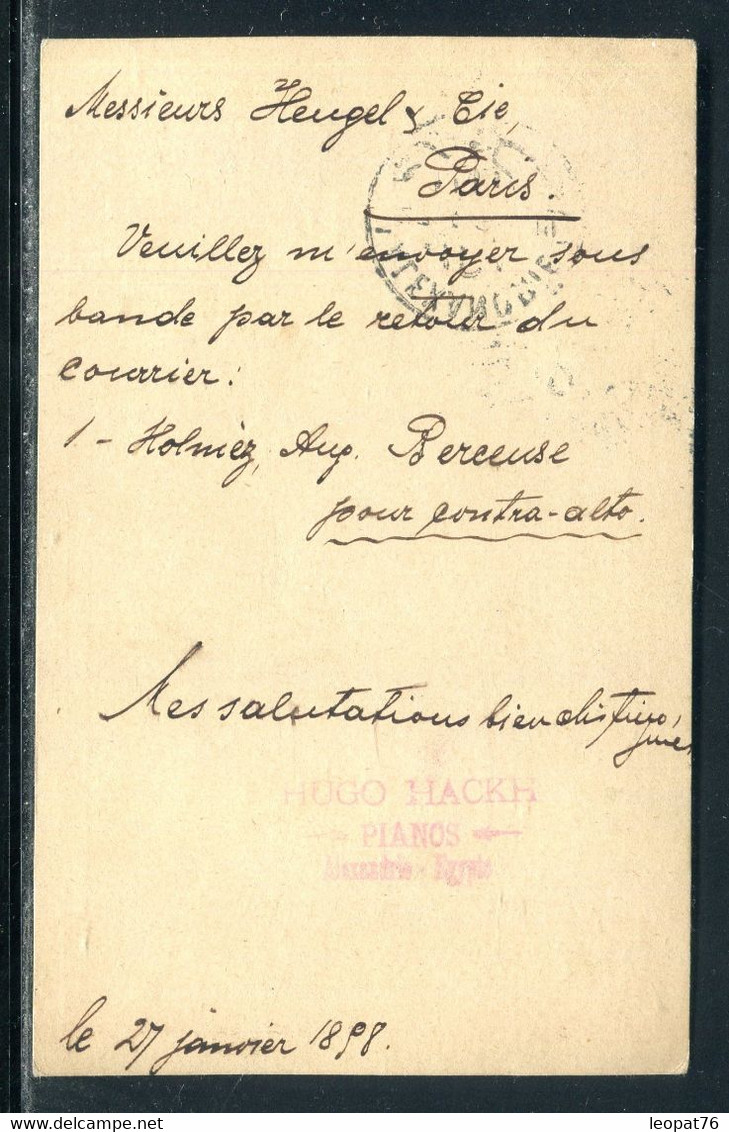 Messieurs Heugel & Cie,
Paris.
Veuillez m'envoyer sous
bande par le retour du
courrier:
1 - Holmèz, Aug. Berceuse
pour contra-alto.
Mes salutations bien distin-
guées
HUGO HACKH
PIANOS
Alexandrie - Egypte
le 27 janvier 1898.
leopat76